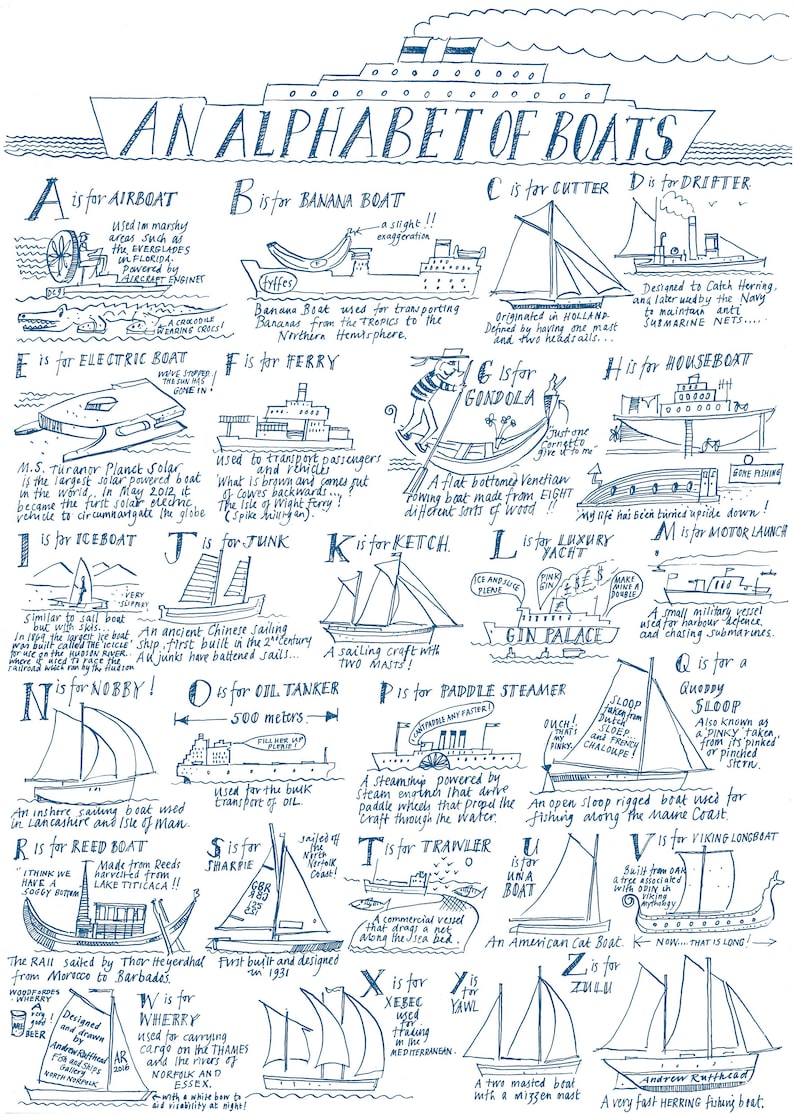 AN ALPHABET OF BOATS
A is for AIRBOAT
Used in marshy
areas such as
the EVERGLADES
in FLORIDA.
Powered by
AIRCRAFT ENGINES
A CROCODILE
WEARING CROCS!
B is for BANANA BOAT
a slight!!
exaggeration
Fyffes
Banana Boat used for transporting
Bananas from the TROPICS to the
Northern Hemisphere.
C is for CUTTER
Originated in HOLLAND
Defined by having one mast
and two headsails...
D is for DRIFTER.
Designed to Catch Herring,
and later used by the Navy
to maintain anti
SUBMARINE NETS....
E is for ELECTRIC BOAT
WE'VE STOPPED!
THE SUN HAS
GONE IN!
M.S. Turanor Planet Solar
is the largest solar powered boat
in the world. In May 2012 it
became the first solar electric
vehicle to circumnavigate the globe
F is for FERRY
Used to transport passengers
and vehicles
'What is brown and comes out
of Cowes backwards...?
The Isle of Wight ferry!
(Spike Milligan).
G is for
GONDOLA
"Just one
Cornetto
give it to me"
A flat bottomed Venetian
rowing boat made from EIGHT
different sorts of wood!!
H is for HOUSEBOAT
GONE FISHING
My life has been turned upside down!
I is for ICEBOAT
VERY
SLIPPERY
Similar to sail boat
but with skis...
In 1869 the largest ice boat
was built called 'THE ICICLE'
for use on the HUDSON RIVER
where it used to race the
railroad which ran by the Hudson
J is for JUNK
An ancient Chinese sailing
ship, first built in the 2nd Century
All junks have battened sails...
K is for KETCH.
A sailing craft with
TWO MASTS!
L is for LUXURY
YACHT
ICE AND SLICE
PLEASE
PINK
GIN
£ $ £ $
MAKE
MINE A
DOUBLE
GIN PALACE
M is for MOTOR LAUNCH
A small military vessel
used for harbour defence
and chasing submarines.
N is for NOBBY!
An inshore sailing boat used
in Lancashire and Isle of Man.
O is for OIL TANKER
500 meters
FILL HER UP
PLEASE!
Used for the bulk
transport of OIL.
P is for PADDLE STEAMER
CAN'T PADDLE ANY FASTER!
A steamship powered by
steam engines that drive
paddle wheels that propel the
craft through the water.
Q is for a
Quoddy
SLOOP
Also known as
a 'PINKY' taken
from its pinked
or pinched
stern.
SLOOP
taken from
Dutch
SLOEP...
and FRENCH
CHALOUPE!
OUCH!
THAT'S
MY
PINKY.
An open sloop rigged boat used for
fishing along the Maine Coast.
R is for REED BOAT
I THINK WE
HAVE A
SOGGY BOTTOM
Made from Reeds
harvested from
LAKE TITICACA!!
The RAII sailed by Thor Heyerdhal
from Morocco to Barbados.
S is for
SHARPIE
sailed off
the
North
Norfolk
Coast!
GBR
First built and designed
in 1931
T is for TRAWLER
A commercial vessel
that drags a net
along the sea bed.
U
is for
UNA
BOAT
An American Cat Boat.
V is for VIKING LONGBOAT
Built from OAK
a tree associated
with ODIN in
Viking
mythology
NOW.... THAT IS LONG!
WOODFORDES
WHERRY
A
very
good!
BEER
Designed
and drawn
by
Andrew Ruffhead
Fish and Ships
Gallery
NORTH NORFOLK
AR
2016
W is for
WHERRY
used for carrying
cargo on the THAMES
and the rivers of
NORFOLK AND
ESSEX.
with a white bow to
aid visability at night!
X is for
XEBEC
used
for
trading
in the
MEDITERRANEAN.
Y is
for
YAWL
A two masted boat
with a mizzen mast
Z is for
ZULU
Andrew Ruffhead
A very fast HERRING fishing boat.